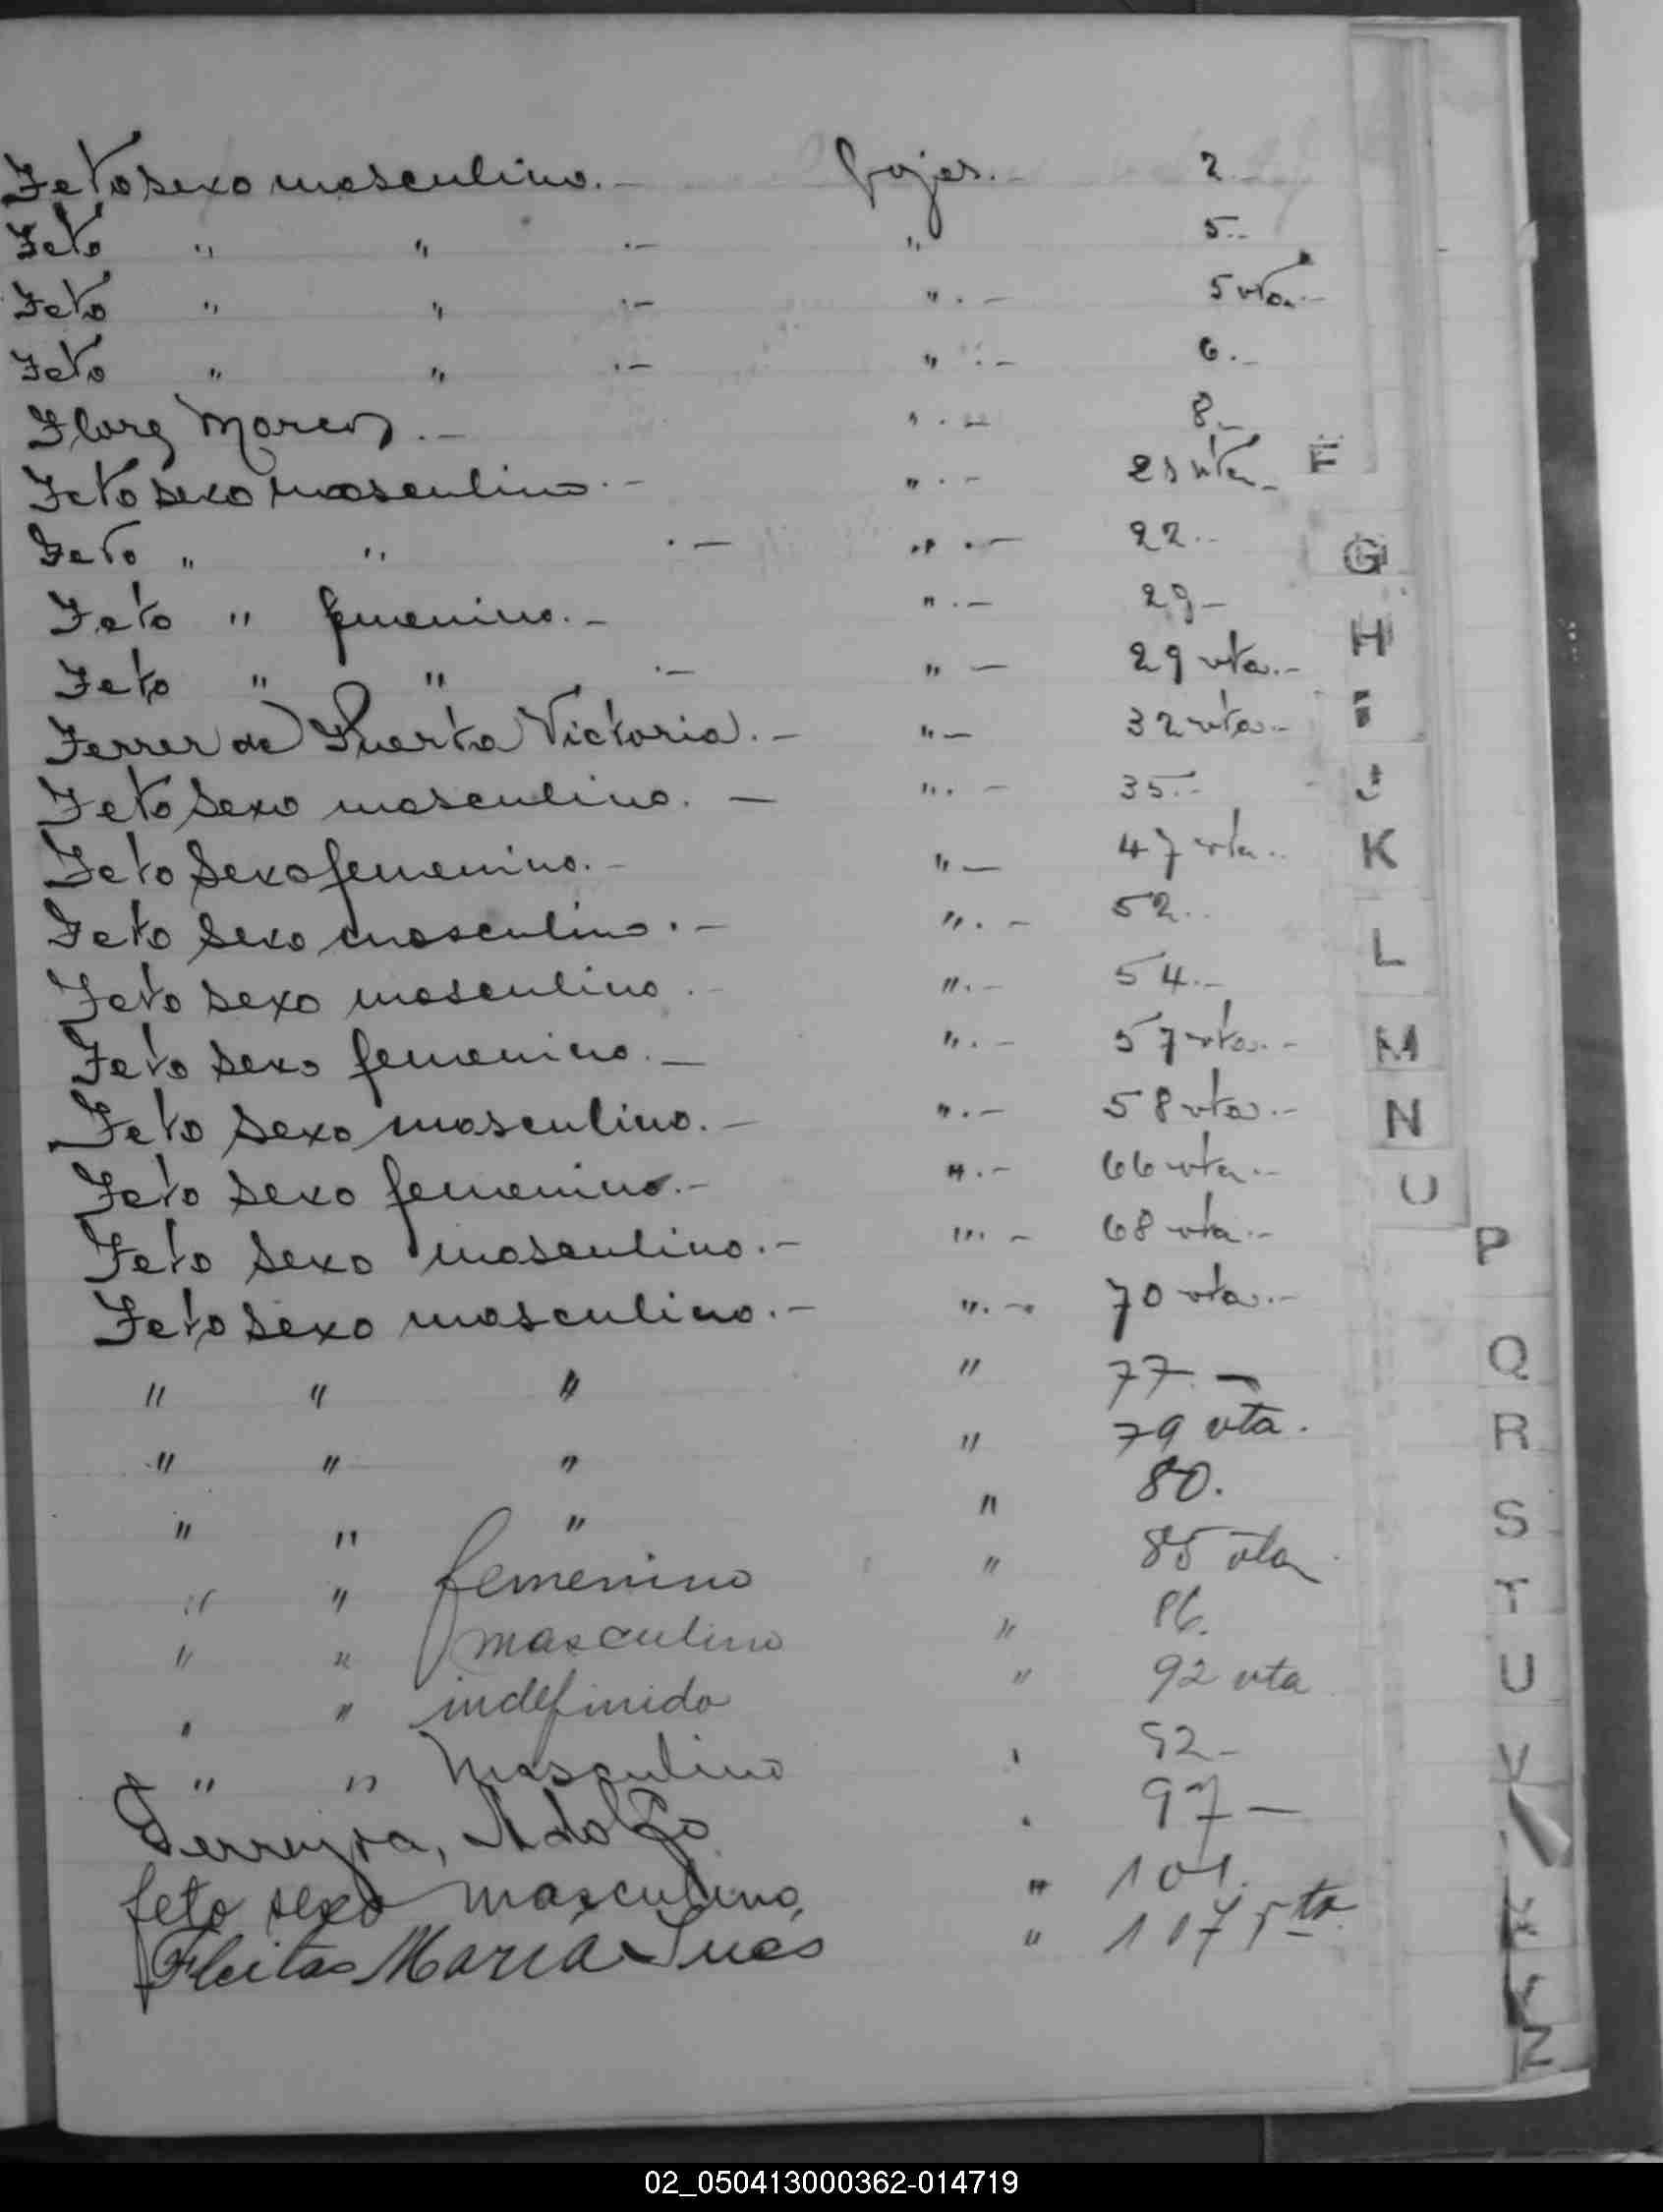 Feto sexo masculino.- fojas.- 2.-
Feto " " .- " 5.-
Feto " " .- " .- 5 vta.-
Feto " " .- " .- 6.-
.- " .- 8.-
Feto sexo masculino.- " .- vta.-
Feto " " .- " .- 22.-
Feto " femenino.- " .- 29-
Feto " " .- " - 29 vta.-
Ferrer de Puerta Victoria.- " - 32 vta.-
Feto sexo masculino.- " .- 35.-
Feto sexo femenino.- " - 47 vta.-
Feto sexo masculino.- " .- 52.-
Feto sexo masculino.- " .- 54.-
Feto sexo femenino.- " .- 57 vta.-
Feto sexo masculino.- " .- 58 vta.-
Feto sexo femenino.- " .- 66 vta.-
Feto sexo masculino.- " .- 68 vta.-
Feto sexo masculino.- " .- 70 vta.-
" " " " 77.-
" " " " 79 vta.
" " " " 80.
" " femenino " 85 vta
" " masculino " 86.
" " indefinido " 92 vta
" " Masculino "
Ferreyra, Adolfo " 97-
feto sexo masculino, " 101.
Fleitas María " 117 vta
F
G
H
I
J
K
L
M
N
O
P
Q
R
S
T
U
V
Y
Z
02_050413000362-014719